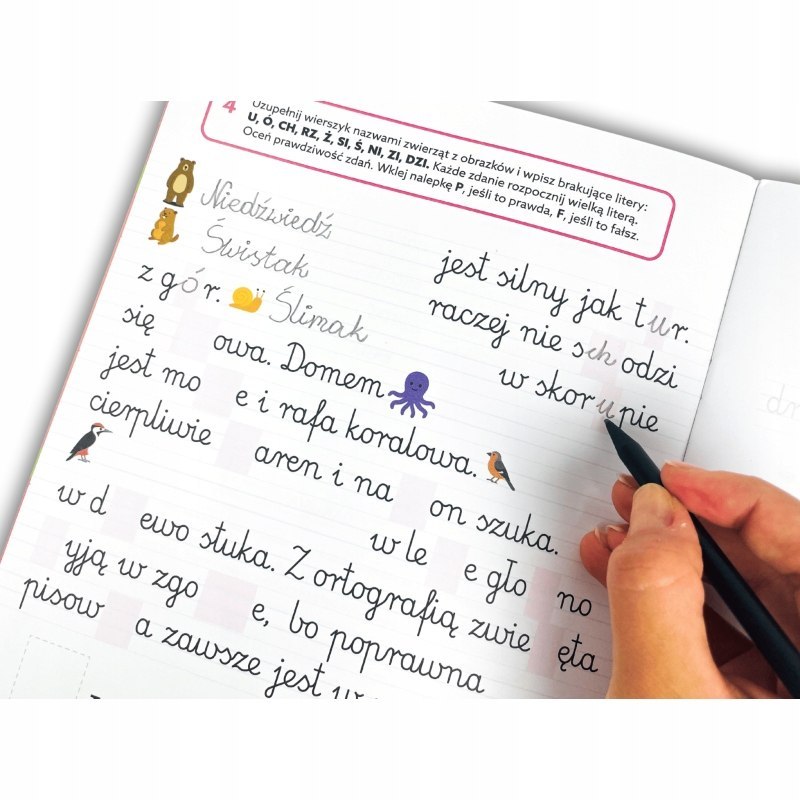 4 Uzupełnij wierszyk nazwami zwierząt z obrazków i wpisz brakujące litery:
U, Ó, CH, RZ, Ż, SI, Ś, NI, ZI, DZI. Każde zdanie rozpocznij wielką literą.
Oceń prawdziwość zdań. Wklej nalepkę P, jeśli to prawda, F, jeśli to fałsz.
Niedźwiedź jest silny jak tur.
Świstak raczej nie schodzi
z gór. Ślimak w skorupie
się owa. Domem
jest mo e i rafa koralowa.
cierpliwie aren i na on szuka.
w d ewo stuka. Z ortografią zwie ęta
w le e gło no
yją w zgo e, bo poprawna
pisow a zawsze jest w